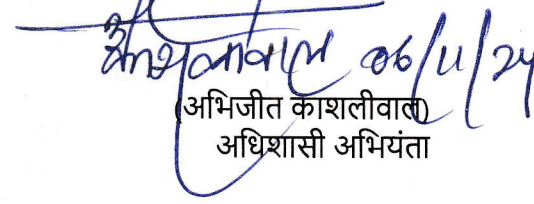 काशलीवाल 06/11/24
(अभिजीत काशलीवाल)
अधिशासी अभियंता